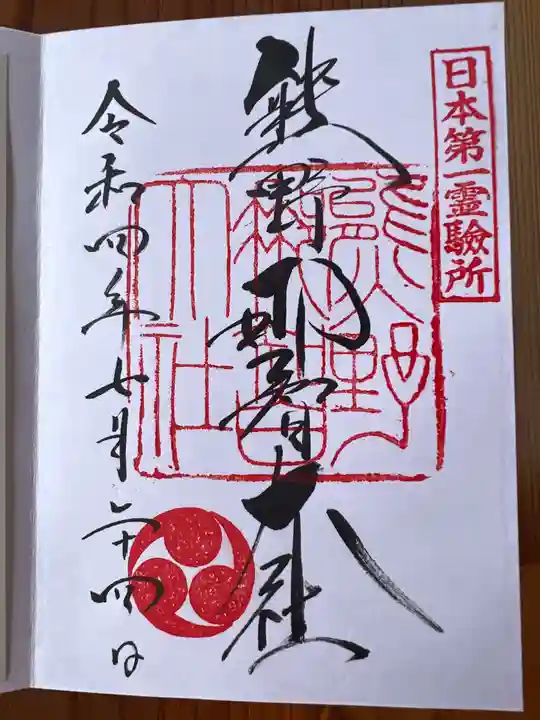 日本第一霊驗所
熊野那智大社
熊野
那智
大社
令和四年七月二十四日